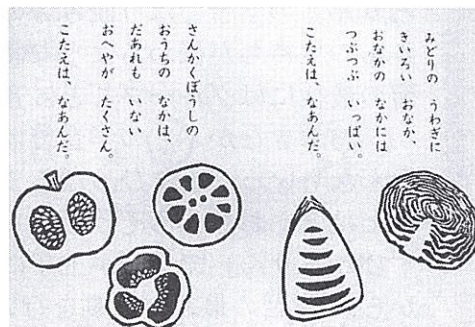 みどりの うわぎに
きいろい おなか、
おなかの なかには
つぶつぶ いっぱい。
こたえは、なあんだ。
さんかくぼうしの
おうちの なかは、
だあれも いない
おへやが たくさん。
こたえは、なあんだ。